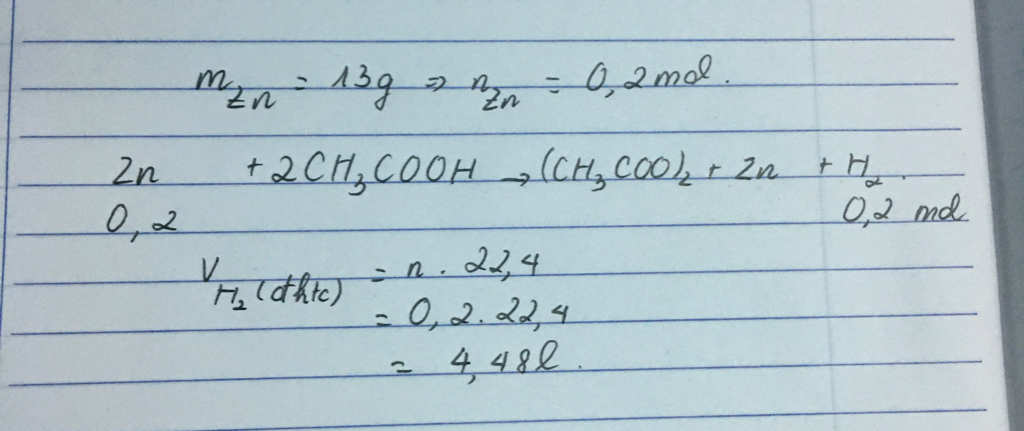 m_Zn = 13g ⇒ n_Zn = 0,2 mol.
Zn + 2CH₃COOH → (CH₃COO)₂ + Zn + H₂.
0,2 0,2 mol
V_H₂ (đktc) = n . 22,4
= 0,2 . 22,4
= 4,48l.